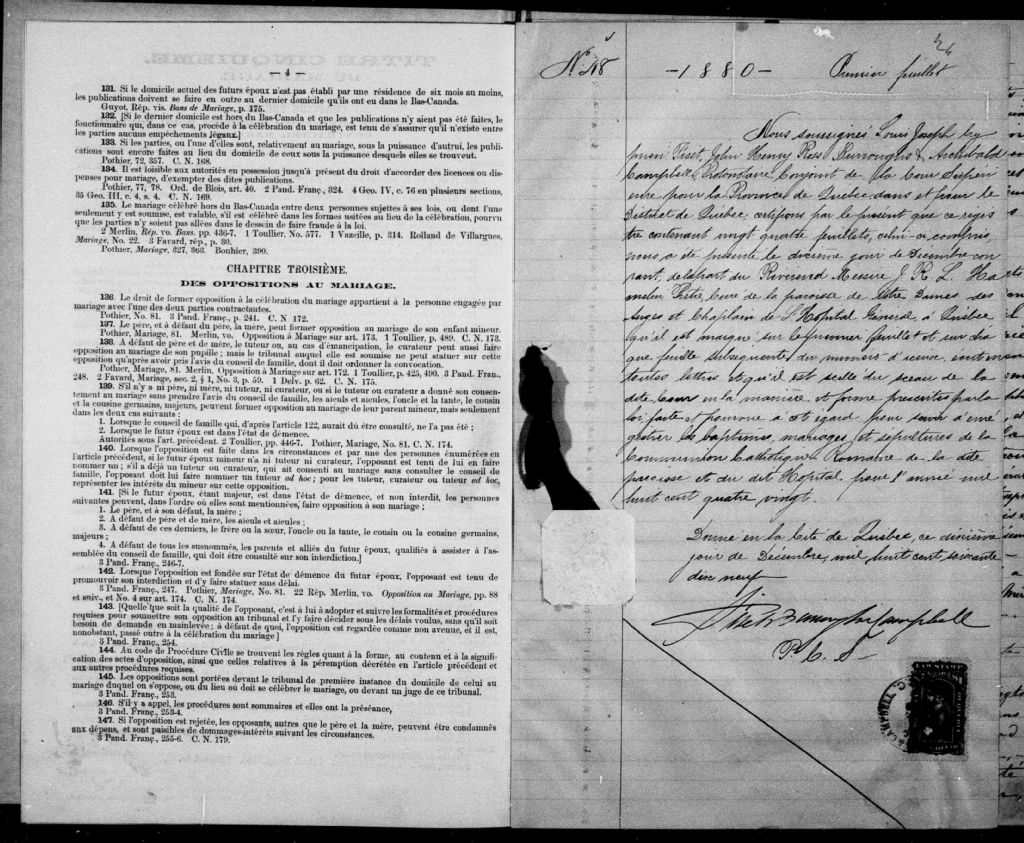 — 4 —
131. Si le domicile actuel des futurs époux n'est pas établi par une résidence de six mois au moins,
les publications doivent se faire en outre au dernier domicile qu'ils ont eu dans le Bas-Canada.
Guyot, Rép. vis. Bans de Mariage, p. 175.
132. [Si le dernier domicile est hors du Bas-Canada et que les publications n'y aient pas été faites, le
fonctionnaire qui, dans ce cas, procède à la célébration du mariage, est tenu de s'assurer qu'il n'existe entre
les parties aucuns empêchements légaux.]
133. Si les parties, ou l'une d'elles sont, relativement au mariage, sous la puissance d'autrui, les publi-
cations sont encore faites au lieu du domicile de ceux sous la puissance desquels elles se trouvent.
Pothier, 72, 357. C. N. 168.
134. Il est loisible aux autorités en possession jusqu'à présent du droit d'accorder des licences ou dis-
penses pour mariage, d'exempter des dites publications.
Pothier, 77, 78. Ord. de Blois, art. 40. 2 Pand. Franç., 324. 4 Geo. IV, c. 76 en plusieurs sections,
35 Geo. III, c. 4, s. 4. C. N. 169.
135. Le mariage célébré hors du Bas-Canada entre deux personnes sujettes à ses lois, ou dont l'une
seulement y est soumise, est valable, s'il est célébré dans les formes usitées au lieu de la célébration, pourvu
que les parties n'y soient pas allées dans le dessein de faire fraude à la loi.
2 Merlin, Rép. vo. Bans. pp. 436-7. 1 Toullier, No. 577. 1 Vazeille, p. 314. Rolland de Villargues,
Mariage, No. 22. 3 Favard, rép., p. 30.
Pothier, Mariage, 327, 363. Bouhier, 390.
CHAPITRE TROISIÈME.
DES OPPOSITIONS AU MARIAGE.
136. Le droit de former opposition à la célébration du mariage appartient à la personne engagée par
mariage avec l'une des deux parties contractantes.
Pothier, No. 81. 3 Pand. Franç., p. 241. C. N 172.
137. Le père, et à défaut du père, la mère, peut former opposition au mariage de son enfant mineur.
Pothier, Mariage, 81. Merlin, vo. Opposition à Mariage sur art. 173. 1 Toullier, p. 489. C. N. 173.
138. A défaut de père et de mère, le tuteur ou, au cas d'émancipation, le curateur peut aussi faire
opposition au mariage de son pupille; mais le tribunal auquel elle est soumise ne peut statuer sur cette
opposition qu'après avoir pris l'avis du conseil de famille, dont il doit ordonner la convocation.
Pothier, Mariage, 81. Merlin, Opposition à Mariage sur art. 172. 1 Toullier, p. 425, 490. 3 Pand. Fran.,
248. 2 Favard, Mariage, sec. 2, § 1, No. 3, p. 59. 1 Delv. p. 62. C. N. 175.
139. S'il n'y a ni père, ni mère, ni tuteur, ni curateur, ou si le tuteur ou curateur a donné son consen-
tement au mariage sans prendre l'avis du conseil de famille, les aieuls et aieules, l'oncle et la tante, le cousin
et la cousine germains, majeurs, peuvent former opposition au mariage de leur parent mineur, mais seulement
dans les deux cas suivants :
1. Lorsque le conseil de famille qui, d'après l'article 122, aurait dû être consulté, ne l'a pas été ;
2. Lorsque le futur époux est dans l'état de démence.
Autorités sous l'art. précédent. 2 Toullier, pp. 446-7. Pothier, Mariage, No. 81. C. N. 174.
140. Lorsque l'opposition est faite dans les circonstances et par une des personnes énumérées en
l'article précédent, si le futur époux mineur n'a ni tuteur ni curateur, l'opposant est tenu de lui en faire
nommer un ; s'il a déjà un tuteur ou curateur, qui ait consenti au mariage sans consulter le conseil de
famille, l'opposant doit lui faire nommer un tuteur ad hoc ; pour les tuteur, curateur ou tuteur ad hoc,
représenter les intérêts du mineur sur cette opposition.
141. [Si le futur époux, étant majeur, est dans l'état de démence, et non interdit, les personnes
suivantes peuvent, dans l'ordre où elles sont mentionnées, faire opposition à son mariage ;
1. Le père, et à son défaut, la mère ;
2. A défaut de père et de mère, les aieuls et aieules ;
3. A défaut de ces derniers, le frère ou la sœur, l'oncle ou la tante, le cousin ou la cousine germains,
majeurs ;
4. A défaut de tous les susnommés, les parents et alliés du futur époux, qualifiés à assister à l'as-
semblée du conseil de famille, qui doit être consulté sur son interdiction.]
3 Pand. Franç., 246-7.
142. Lorsque l'opposition est fondée sur l'état de démence du futur époux, l'opposant est tenu de
promouvoir son interdiction et d'y faire statuer sans délai.
3 Pand. Franç., 247. Pothier, Mariage, No. 81. 22 Rép. Merlin, vo. Opposition au Mariage, pp. 88
et suiv., et No. 4 sur art. 174. C. N. 174.
143. [Quelle que soit la qualité de l'opposant, c'est à lui à adopter et suivre les formalités et procédures
requises pour soumettre son opposition au tribunal et l'y faire décider sous les délais voulus, sans qu'il soit
besoin de demande en mainlevée ; à défaut de quoi, l'opposition est regardée comme non avenue, et il est,
nonobstant, passé outre à la célébration du mariage]
3 Pand. Franç., 254.
144. Au code de Procédure Civile se trouvent les règles quant à la forme, au contenu et à la signifi-
cation des actes d'opposition, ainsi que celles relatives à la péremption décrétée en l'article précédent et
aux autres procédures requises.
145. Les oppositions sont portées devant le tribunal de première instance du domicile de celui au
mariage duquel on s'oppose, ou du lieu où doit se célébrer le mariage, ou devant un juge de ce tribunal.
3 Pand. Franç., 253.
146. S'il y a appel, les procédures sont sommaires et elles ont la préséance,
3 Pand. Franç., 253-4.
147. Si l'opposition est rejetée, les opposants, autres que le père et la mère, peuvent être condamnés
aux dépens, et sont paisibles de dommages-intérêts suivant les circonstances.
3 Pand. Franç., 255-6. C. N. 179.
—1880— Premier feuillet
Nous soussignés Louis Joseph Cy
prien Fiset, John Henry Ross Burroughs & Archibald
Campbell, Protonotaire Conjoint de la Cour Supéri
eure pour la Province de Québec dans et pour le
District de Québec, certifions par le présent que ce regis
tre contenant vingt quatre feuillets, celui-ci compris,
nous a été présenté le dixième jour de Décembre cou
rant, de la part du Révérend Messire J. R. L. Ha
melin Prêtre, Curé de la paroisse de Notre Dames des
Anges et Chaplain de l'Hôpital Général, à Québec
qu'il est marqué sur le premier feuillet et sur cha
que feuille subsequente du numéro d'icelle, écrit en
toutes lettres et qu'il est scellé du sceau de la
dite Cour en la manière et forme prescrites par la
loi faite et pourvue à cet égard pour servir à enré
gistrer les baptêmes, mariages et sépultures de la
Communion Catholique Romaine de la dite
paroisse et du dit Hôpital, pour l'année mil
huit cent quatre vingt.
Donné en la Cité de Québec, ce dixième
jour de Décembre, mil huit cent soixante
dix neuf
Fiset Burroughs Campbell
P. C. S
LAW STAMP